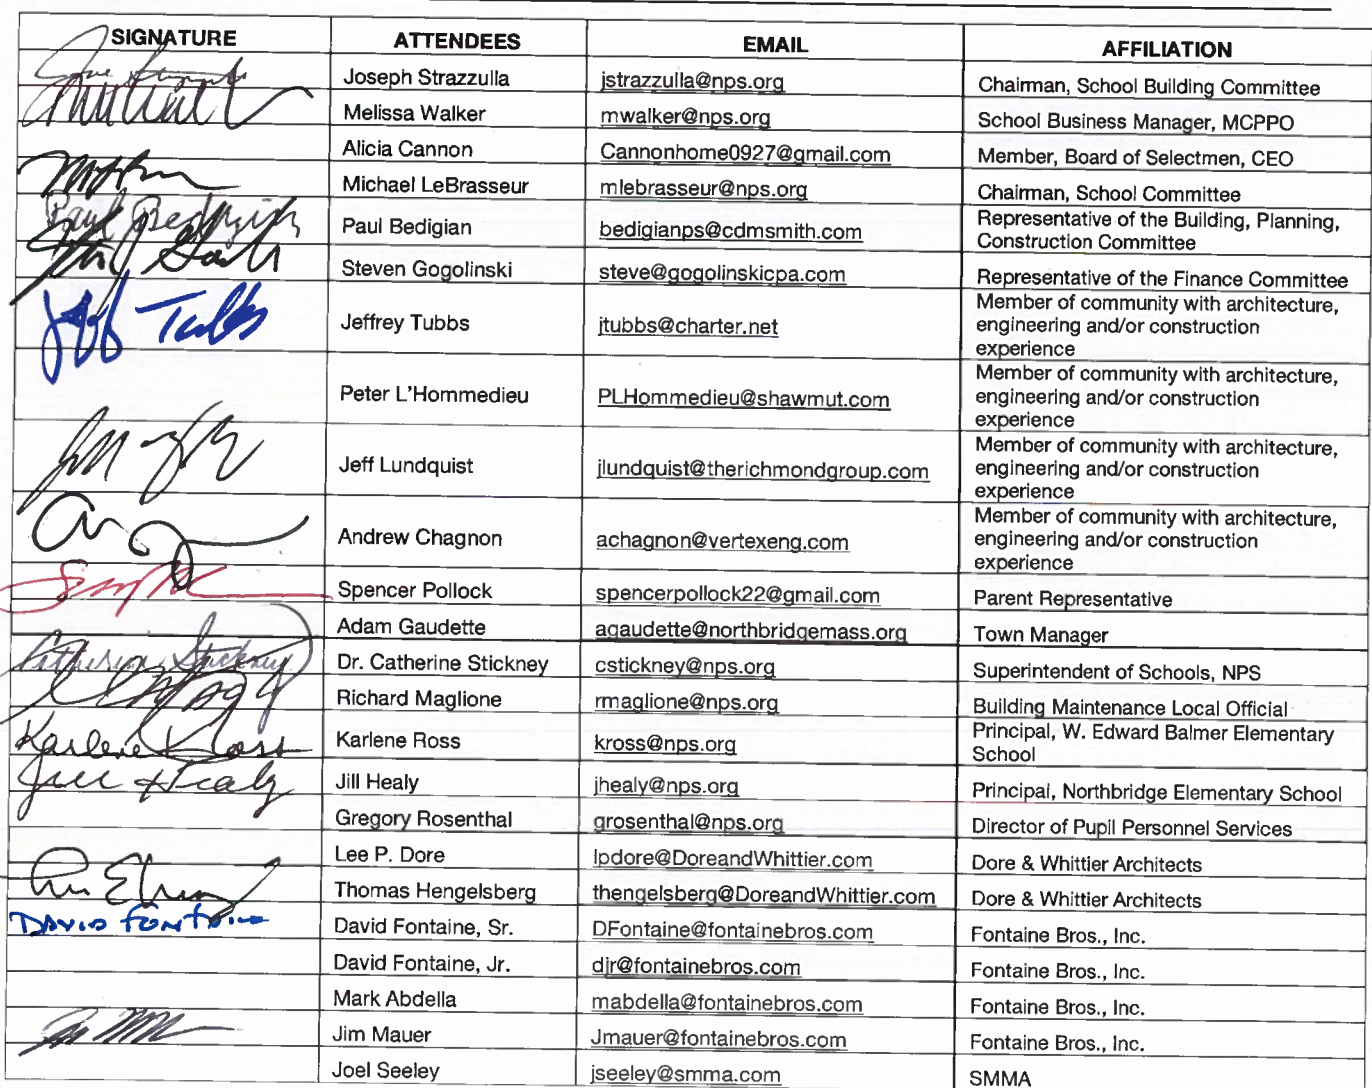 SIGNATURE ATTENDEES EMAIL AFFILIATION
Joseph Strazzulla jstrazzulla@nps.org Chairman, School Building Committee
Melissa Walker mwalker@nps.org School Business Manager, MCPPO
Alicia Cannon Cannonhome0927@gmail.com Member, Board of Selectmen, CEO
Michael LeBrasseur mlebrasseur@nps.org Chairman, School Committee
Paul Bedigian Paul Bedigian bedigianps@cdmsmith.com Representative of the Building, Planning,
Construction Committee
Steven Gogolinski steve@gogolinskicpa.com Representative of the Finance Committee
Jeff Tubbs Jeffrey Tubbs jtubbs@charter.net Member of community with architecture,
engineering and/or construction
experience
Peter L'Hommedieu PLHommedieu@shawmut.com Member of community with architecture,
engineering and/or construction
experience
Jeff Lundquist jlundquist@therichmondgroup.com Member of community with architecture,
engineering and/or construction
experience
Andrew Chagnon achagnon@vertexeng.com Member of community with architecture,
engineering and/or construction
experience
Spencer Pollock spencerpollock22@gmail.com Parent Representative
Adam Gaudette agaudette@northbridgemass.org Town Manager
Catherine Stickney Dr. Catherine Stickney cstickney@nps.org Superintendent of Schools, NPS
Richard Maglione rmaglione@nps.org Building Maintenance Local Official
Karlene Ross Karlene Ross kross@nps.org Principal, W. Edward Balmer Elementary
School
Jill Healy Jill Healy jhealy@nps.org Principal, Northbridge Elementary School
Gregory Rosenthal grosenthal@nps.org Director of Pupil Personnel Services
Lee P. Dore lpdore@DoreandWhittier.com Dore & Whittier Architects
Thomas Hengelsberg thengelsberg@DoreandWhittier.com Dore & Whittier Architects
DAVID FONTAINE David Fontaine, Sr. DFontaine@fontainebros.com Fontaine Bros., Inc.
David Fontaine, Jr. djr@fontainebros.com Fontaine Bros., Inc.
Mark Abdella mabdella@fontainebros.com Fontaine Bros., Inc.
Jim Mauer Jmauer@fontainebros.com Fontaine Bros., Inc.
Joel Seeley jseeley@smma.com SMMA